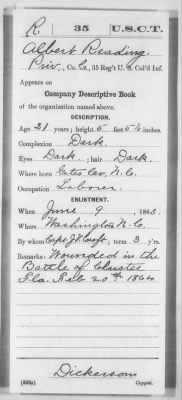 R | 35 | U.S.C.T.
Albert Reading
Priv., Co. C, 35 Reg't U. S. Col'd Inf.
Appears on
Company Descriptive Book
of the organization named above.
DESCRIPTION.
Age 21 years; height 5 feet 5½ inches.
Complexion Dark.
Eyes Dark.; hair Dark.
Where born Co., N. C.
Occupation Laborer.
ENLISTMENT.
When June 9, 1863.
Where Washington N. C.
By whom Capt J. Croft; term 3 y'rs.
Remarks: Wounded in the
Battle of
Fla. Feb 20th 1864
Dickerson
Copyist.